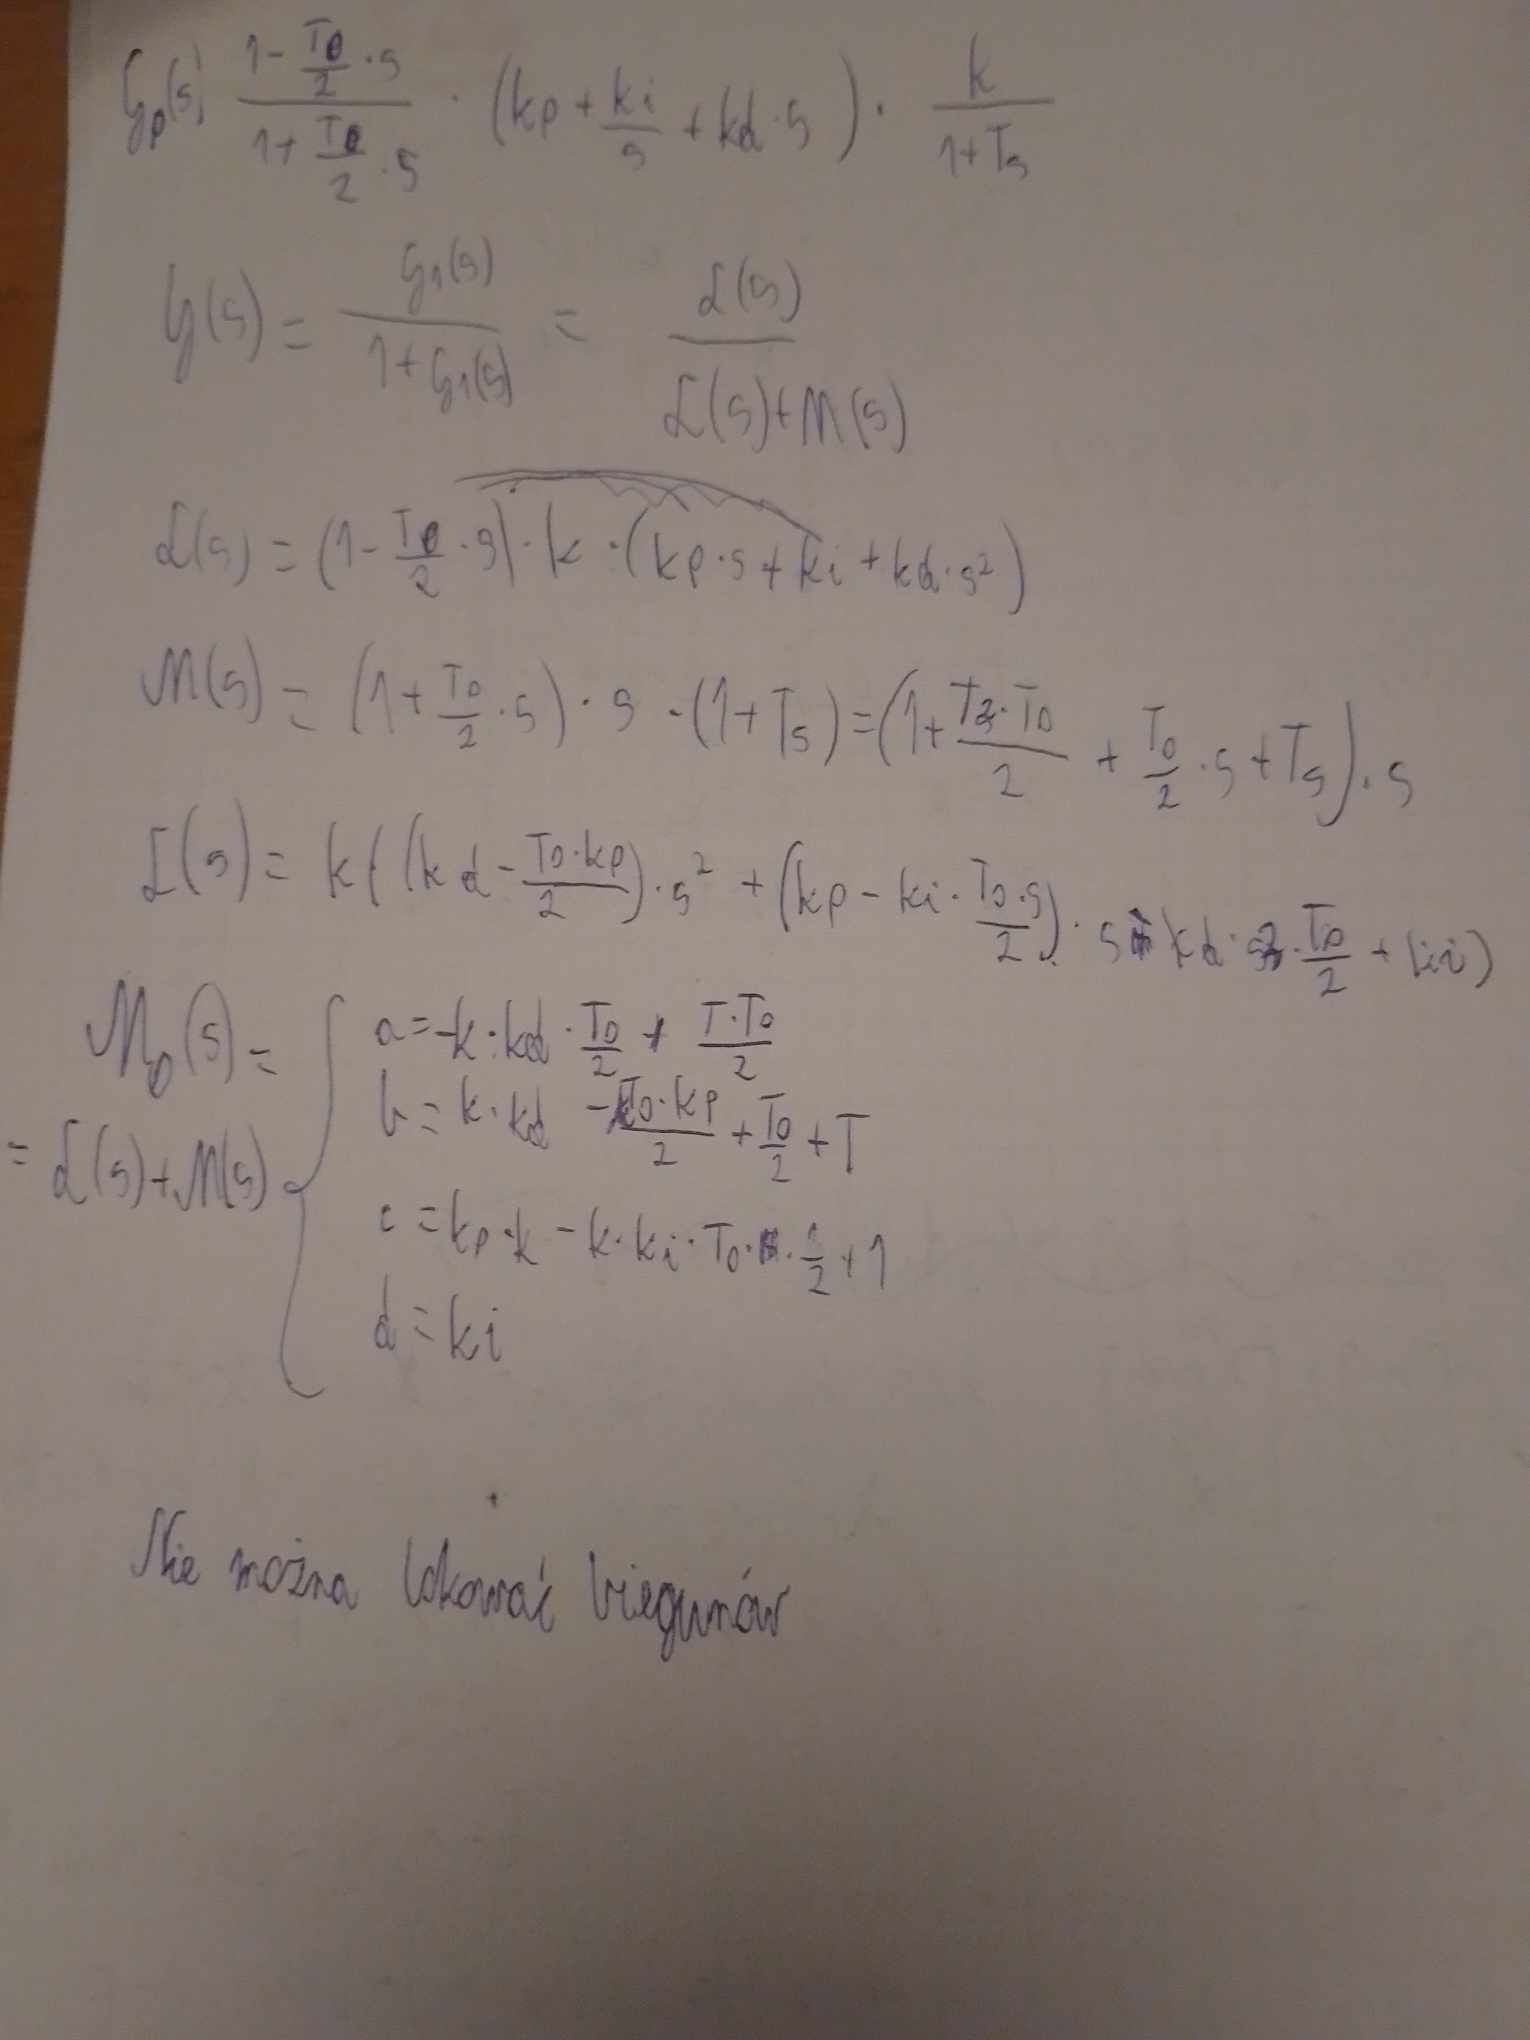 Gp(s) (1 - T0/2 · s)/(1 + T0/2 · s) · (kp + ki/s + kd · s) · k/(1+Ts)
G(s) = G1(s)/(1+G1(s)) = L(s)/(L(s)+M(s))
L(s) = (1 - T0/2 · s) · k · (kp · s + ki + kd · s²)
M(s) = (1 + T0/2 · s) · s · (1+Ts) = (1 + Ts · T0/2 + T0/2 · s + Ts) · s
L(s) = k((kd - T0·kp/2) · s² + (kp - ki · T0·s/2) · s kd · T0/2 + ki)
M0(s) =
= L(s)+M(s)
a = -k · kd · T0/2 + T·T0/2
b = k · kd - T0·kp/2 + T0/2 + T
c = kp · k - k · ki · T0 · 1/2 + 1
d = ki
Nie można lokować biegunów